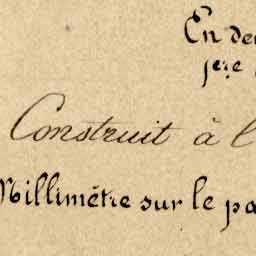 En de
1ère
Construit à l
Millimètre sur le pa